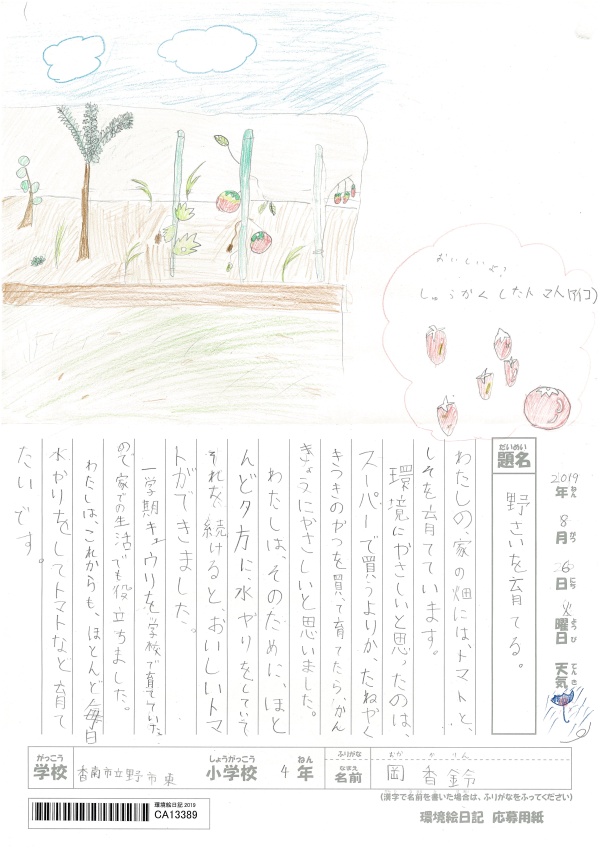 おいしいよ!
しゅうかくしたトマト(アイコ)
だいめい
題名
野さいを育てる。
2019年ねん
8月がつ
日にち
火曜日ようび
天気てんき
わたしの、家の畑には、トマトと、
しそを育てています。
環境にやさしいと思ったのは、
スーパーで買うよりか、たねやく
きつきのやつを買って育てたら、かん
きょうにやさしいと思いました。
わたしは、そのために、ほと
んど夕方に、水やりをしていて
それを続けると、おいしいトマ
トができました。
一学期キュウリを学校で育てていた
ので家での生活でも役立ちました。
わたしは、これからも、ほとんど毎日
水やりをしてトマトなど育て
たいです。
がっこう
学校
香南市立野市東
しょうがっこう
小学校
4年ねん
ふりがな
おか か りん
なまえ
名前
岡 香鈴
(漢字で名前を書いた場合は、ふりがなをふってください)
環境絵日記 2019
CA13389
環境絵日記 応募用紙